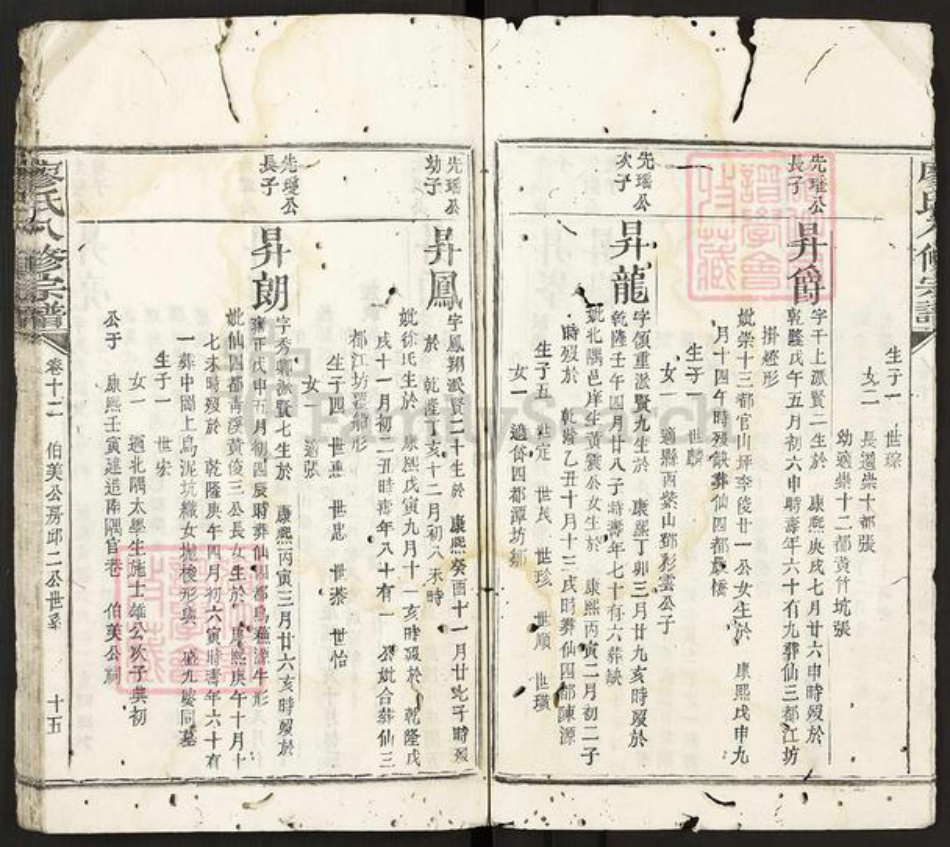 生子一 世琮
女二 長適崇十都張
幼適崇十二都黃竹坑張
先瑤公長子
昇爵
字千上派賢二生於 康熙庚戌七月廿六申時歿於
乾隆戊午五月初六申時壽年六十有九葬仙三都江坊
掛燈形
妣崇十三都官山坪李俊廿一公女生於 康熙戊申九
月十四午時歿缺葬仙四都
生子一 世麟
女一 適縣西紫山鄧彩雲公子
先瑤公次子
昇龍
字領重派賢九生於 康熙丁卯三月廿九亥時歿於
乾隆壬午四月廿八子時壽年七十有六葬缺
妣北隅邑庠生黃公女生於 康熙丙寅二月初二子
時歿於 乾隆乙丑十月十三戌時葬仙四都陳源
生子五 世定 世 世珍 世順 世璜
女一 適食四都潭坊鄒
先瑤公幼子
昇鳳
字鳳翔派賢二十生於 康熙癸酉十一月廿 子時歿
於 乾隆丁亥十二月初八未時
妣徐氏生於 康熙戊寅九月十一亥時歿於 乾隆戊
戌十一月初二丑時壽年八十有一 公妣合葬仙三
都江坊 形
生子四 世惠 世忠 世 世怡
女 適張
先璦公長子
昇朗
字秀 派賢七生於 康熙丙寅三月廿六亥時歿於
雍正戊申五月初四辰時葬仙四都烏 牛形
妣仙四都青溪黃俊三公長女生於 康熙庚午十月十
七未時歿於 乾隆庚午四月初六寅時壽年六十有
一葬中閣上烏泥坑織女拋梭形與 婆同墓
生子一 世宏
女一 適北隅太學生施士雄公次子典初
公于 康熙壬寅建造南隅官巷 伯美公祠
廖氏八修宗譜 卷十二 伯美公房邱二公世系 十五